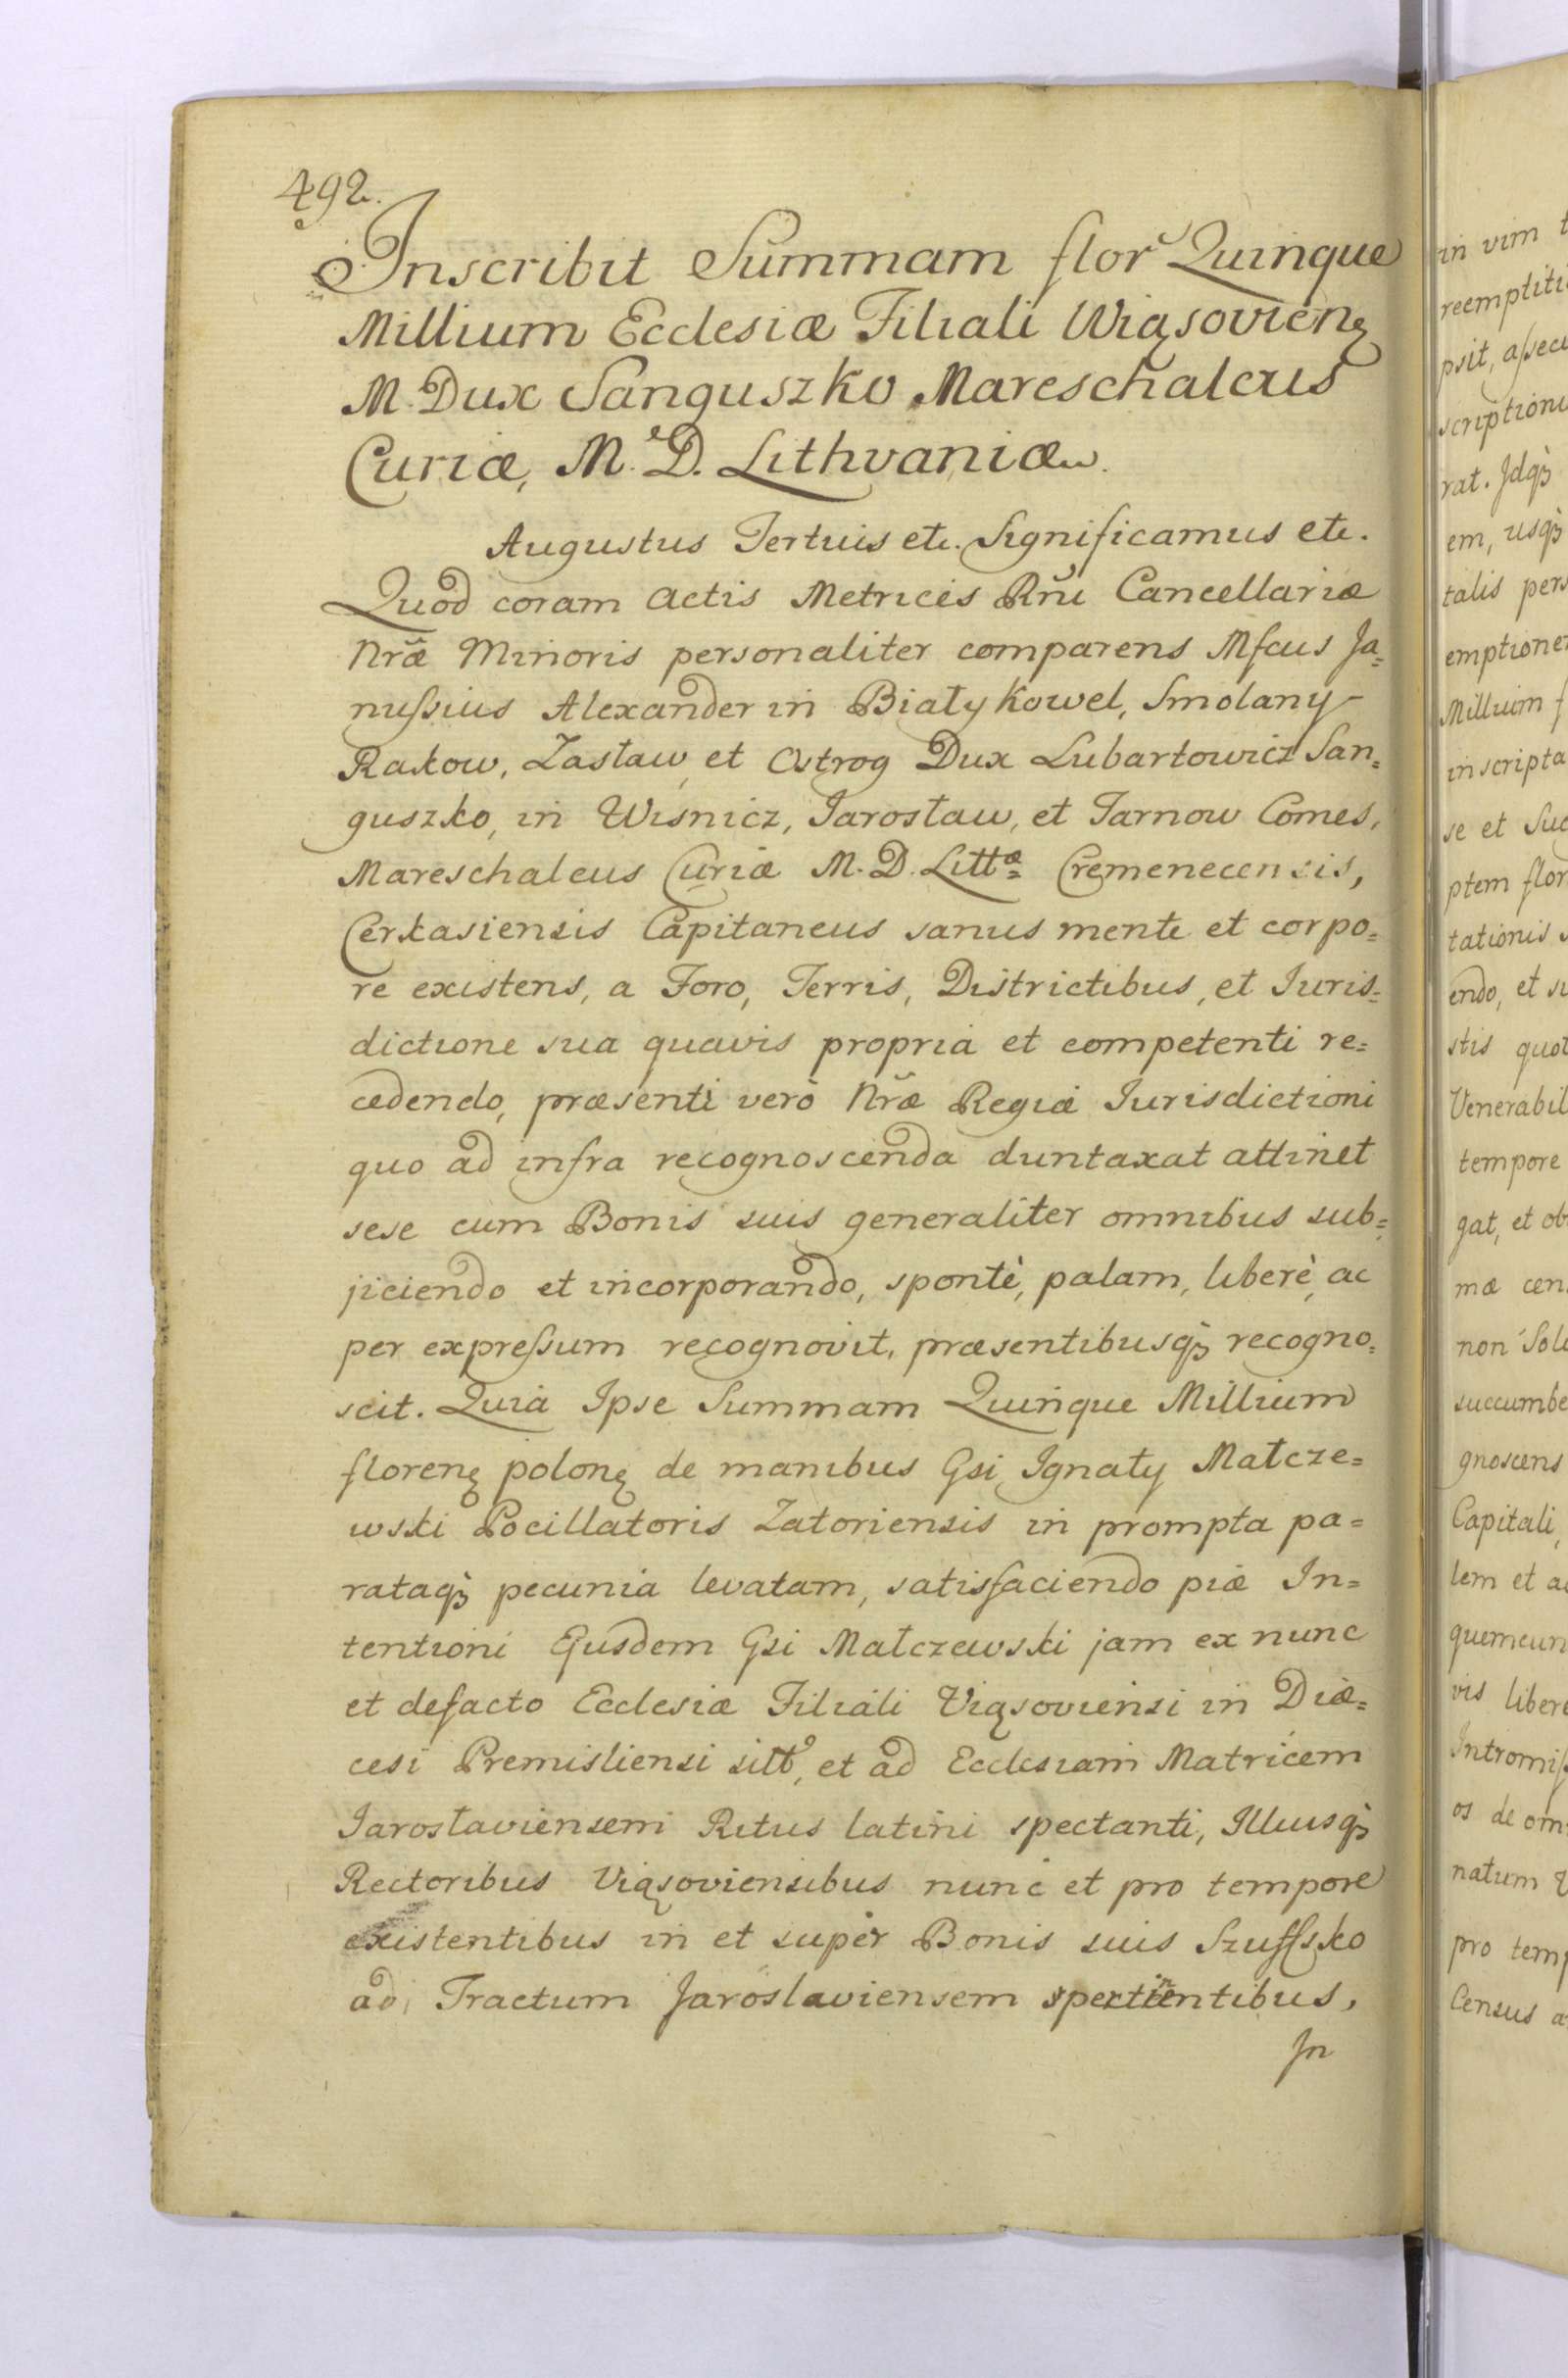 492.
Inscribit Summam flor. Quinque
Millium Ecclesiæ Filiali Wiązovienę
M. Dux Sanguszko Mareschalcus
Curiæ, M. D. Lithvaniæ.
Augustus Tertuis etc. Significamus etc.
Quod coram actis Metrices Rñi Cancellariæ
Nrã Minoris personaliter comparens Mfcus Ja=
nuſsius Alexander in Biały Kowel, Smolany
Rakow, Zasław et Ostrog Dux Lubartowicz San=
guszko, in Wisnicz, Jarosław, et Tarnow Comes,
Mareschalcus Curiæ M. D. Littæ Cremenecensis,
Cerkasiensis Capitaneus sanus mente et corpo=
re existens, a Foro, Terris, Districtibus, et Juris=
dictione sua quavis propria et competenti re=
cedendo, præsenti verò Nræ Regiæ Jurisdictioni
quo ad infra recognoscenda duntaxat attinet
sese cum Bonis suis generaliter omnibus sub=
jiciendo et incorporando, spontè, palam, liberè, ac
per expreſsum recognovit, præsentibusq; recogno=
scit. Quia Ipse Summam Quinque Millium
florenę polonę de manibus Gsi Ignaty Małcze=
wski Pocillatoris Zatoriensis in prompta pa=
rataq; pecunia levatam, satisfaciendo piæ In=
tentioni Ejusdem Gsi Małczewski jam ex nunc
et defacto Ecclesiæ Filiali Viązoviensi in Diæ=
cesi Premisliensi sitt, et ad Ecclesiam Matricem
Jarosłaviensem Ritus latini spectanti, Illiusq;
Rectoribus Viązoviensibus nunc et pro tempore
existentibus in et super Bonis suis Szuſſsko
ad Tractum Jaroslaviensem spertinentibus,
In
in vim
reemptiti
psit, aſsecu
scriptioni
rat. Idq;
em, usq;
talis pers
emptione
Millium f
inscripta
se et Suc
ptem flor
tationis
endo, et su
stis quot
Venerabil
tempore
gat, et ob
mæ cen
non Sol
succumbe
gnoscens
Capitali,
lem et a
quemcun
vis liber
Intromiſ
os de om
natum
pro temp
Census a